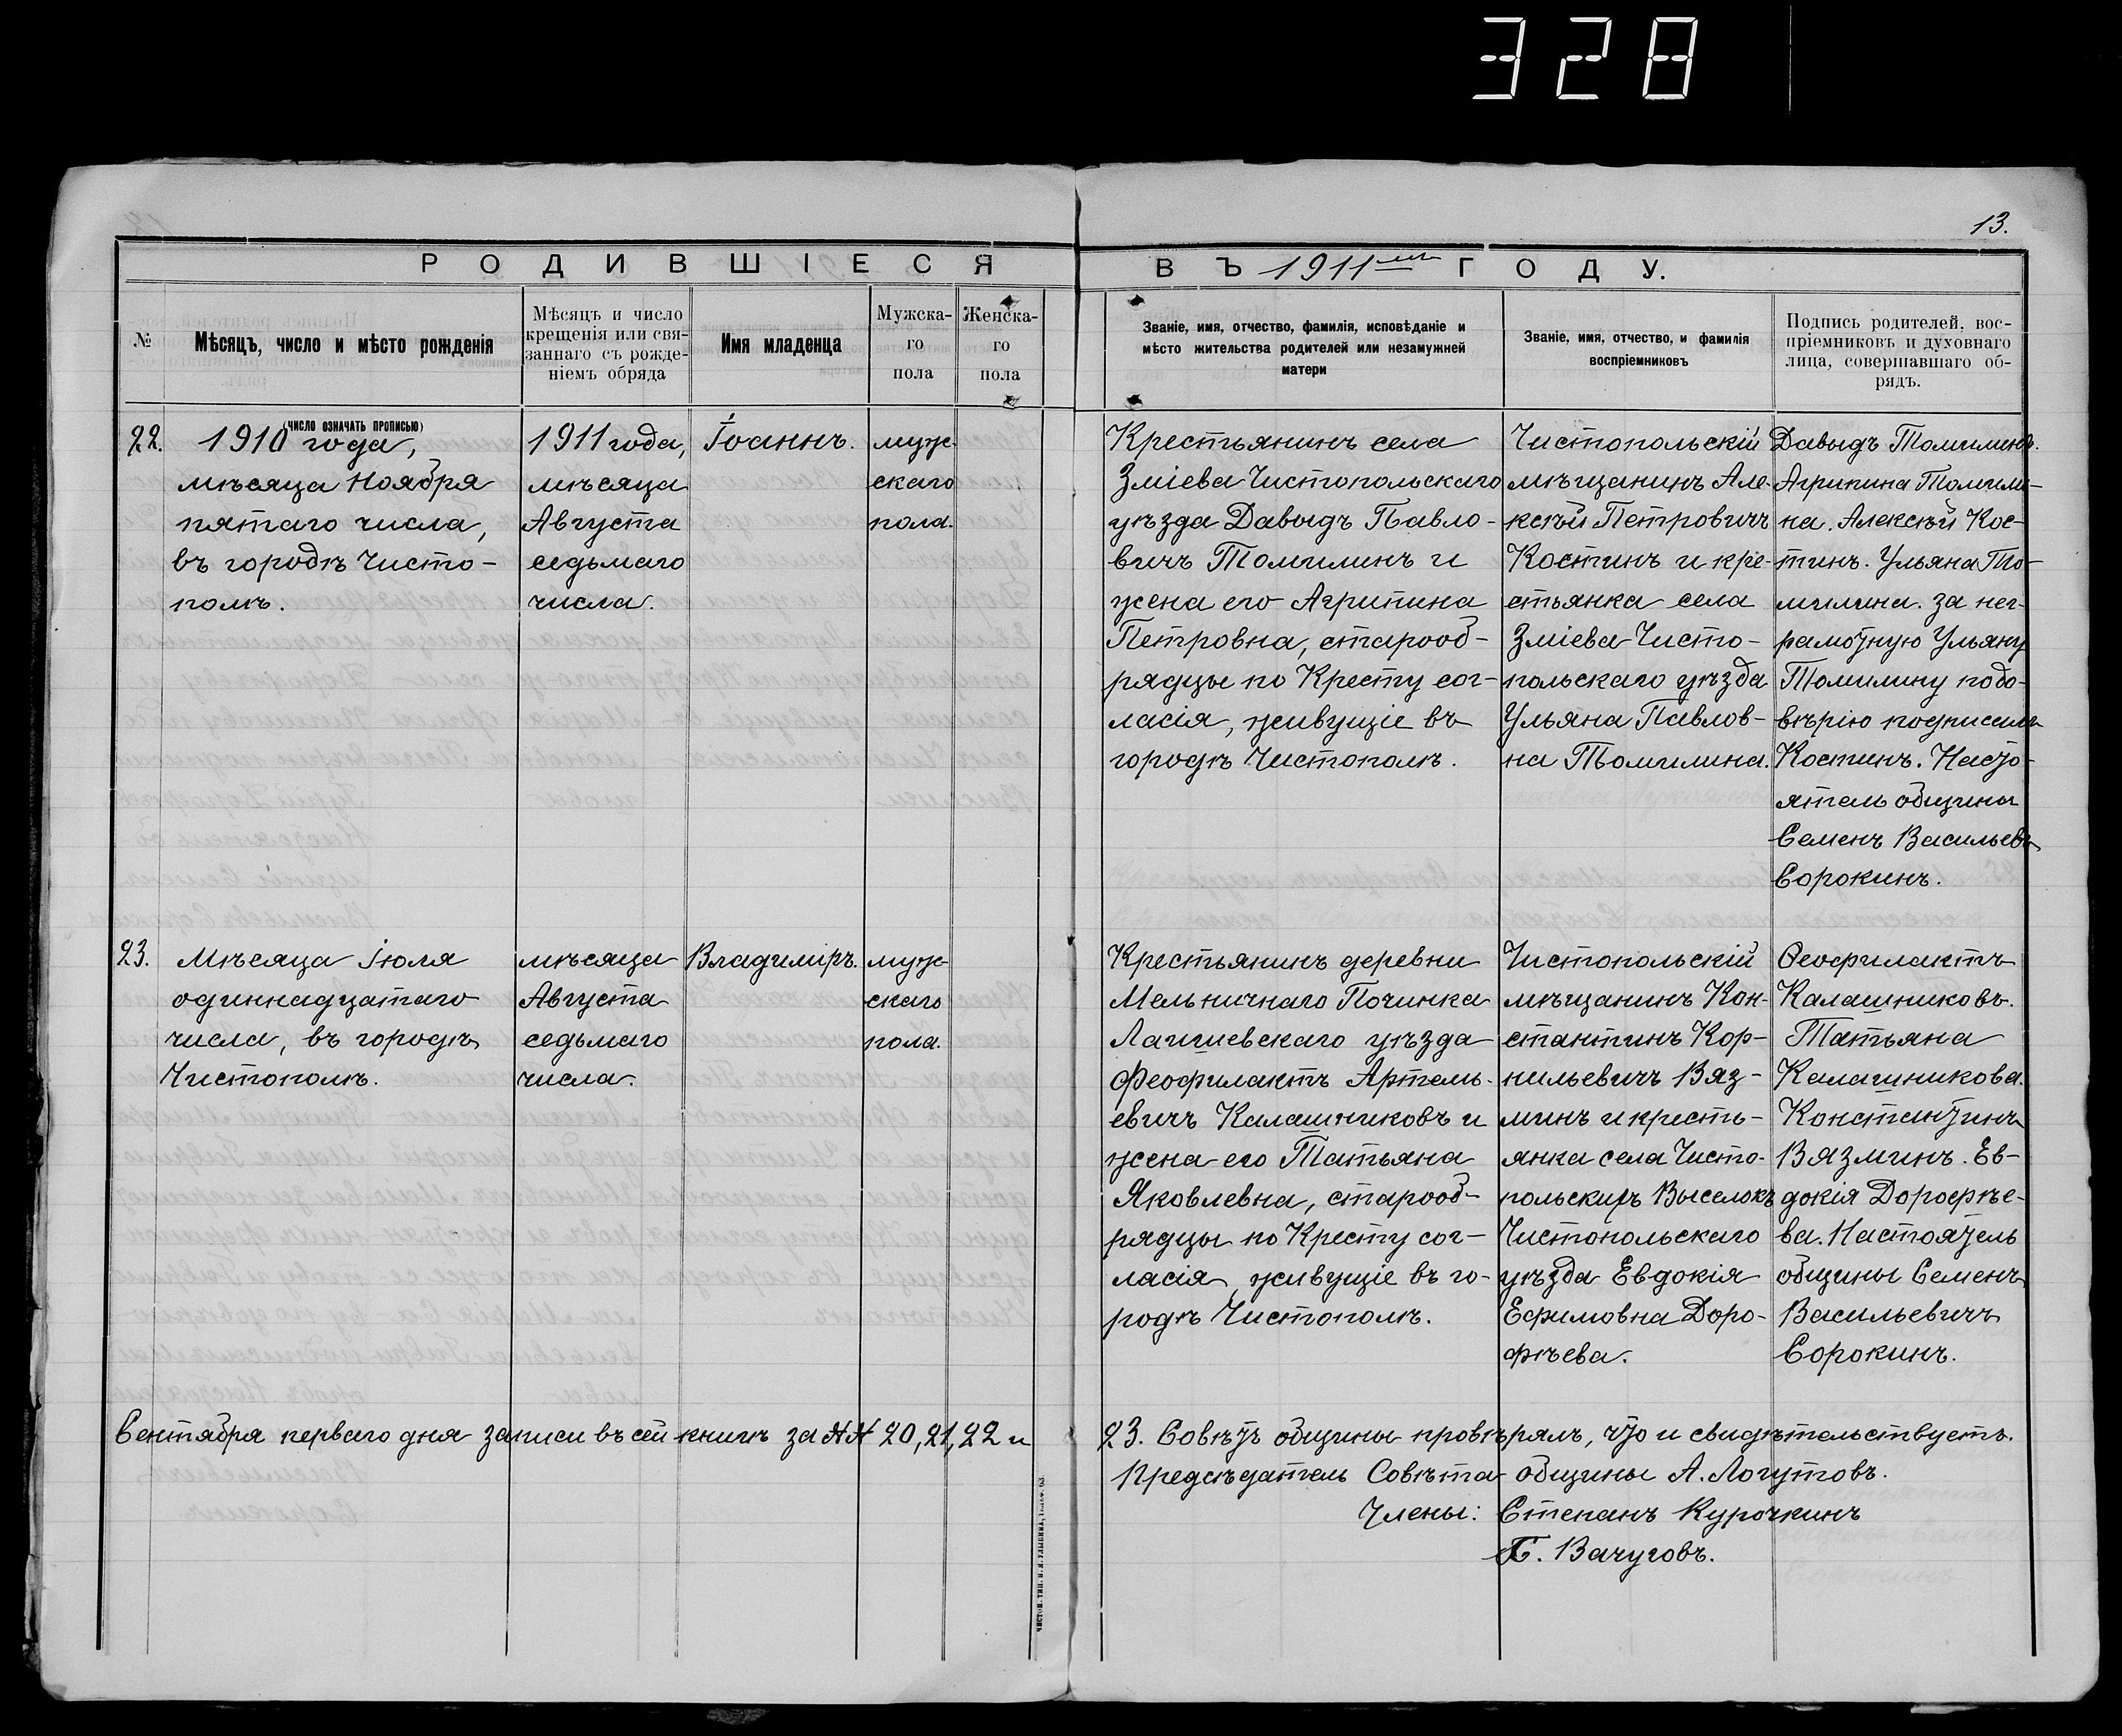 328
13.
РОДИВШІЕСЯ
ВЪ 1911мъ ГОДУ.
№
Мѣсяцъ, число и мѣсто рожденія
(число означать прописью)
Мѣсяцъ и число
крещенія или свя-
заннаго съ рожде-
ніемъ обряда
Имя младенца
Мужска-
го
пола
Женска-
го
пола
Званіе, имя, отчество, фамилія, исповѣданіе и
мѣсто жительства родителей или незамужней
матери
Званіе, имя, отчество, и фамилія
воспріемниковъ
Подпись родителей, вос-
пріемниковъ и духовнаго
лица, совершавшаго об-
рядъ.
22.
1910 года,
мѣсяца Ноября
пятаго числа,
въ городѣ Чисто-
полѣ.
1911 года,
мѣсяца
Августа
седьмаго
числа.
Іоаннъ.
муж-
скаго
пола.
Крестьянинъ села
Зміева Чистопольскаго
уѣзда Давыдъ Павло-
вичъ Томилинъ и
жена его Агрипина
Петровна, старооб-
рядцы по Кресту сог-
ласія, живущіе въ
городѣ Чистополѣ.
Чистопольскій
мѣщанинъ Але-
ксѣй Петровичъ
Костинъ и кре-
стьянка села
Зміева Чисто-
польскаго уѣзда
Ульяна Павлов-
на Томилина.
Давыдъ Томилинъ.
Агрипина Томили-
на. Алексѣй Кос-
тинъ. Ульяна То-
милина. за нег-
рамотную Ульяну
Томилину подо-
вѣрію подписалъ
Костинъ. Насто-
ятель общины
Семенъ Васильевъ
Сорокинъ.
23.
Мѣсяца Іюля
одиннадцатаго
числа, въ городѣ
Чистополѣ.
мѣсяца
Августа
седьмаго
числа.
Владимиръ.
муж-
скаго
пола.
Крестьянинъ деревни
Мельничнаго Починка
Лаишевскаго уѣзда
Феофилактъ Артемь-
евичъ Калашниковъ и
жена его Татьяна
Яковлевна, старооб-
рядцы по Кресту сог-
ласія, живущіе въ го-
родѣ Чистополѣ.
Чистопольскій
мѣщанинъ Кон-
стантинъ Кор-
нильевичъ Вяз-
минъ и кресть-
янка села Чисто-
польскихъ Выселокъ
Чистопольскаго
уѣзда Евдокія
Ефимовна Доро-
фѣева.
Ѳеофилактъ
Калашниковъ.
Татьяна
Калашникова.
Константинъ
Вязминъ. Ев-
докія Дорофѣе-
ва. Настоятель
общины Семенъ
Васильевичъ
Сорокинъ.
Сентября перваго дня записи въ сей книгѣ за №№ 20, 21, 22 и
23. Совѣтъ общины провѣрялъ, что и свидѣтельствуетъ.
Предсѣдатель Совѣта общины А. Логутовъ.
Члены: Степанъ Курочкинъ
Вачуговъ.